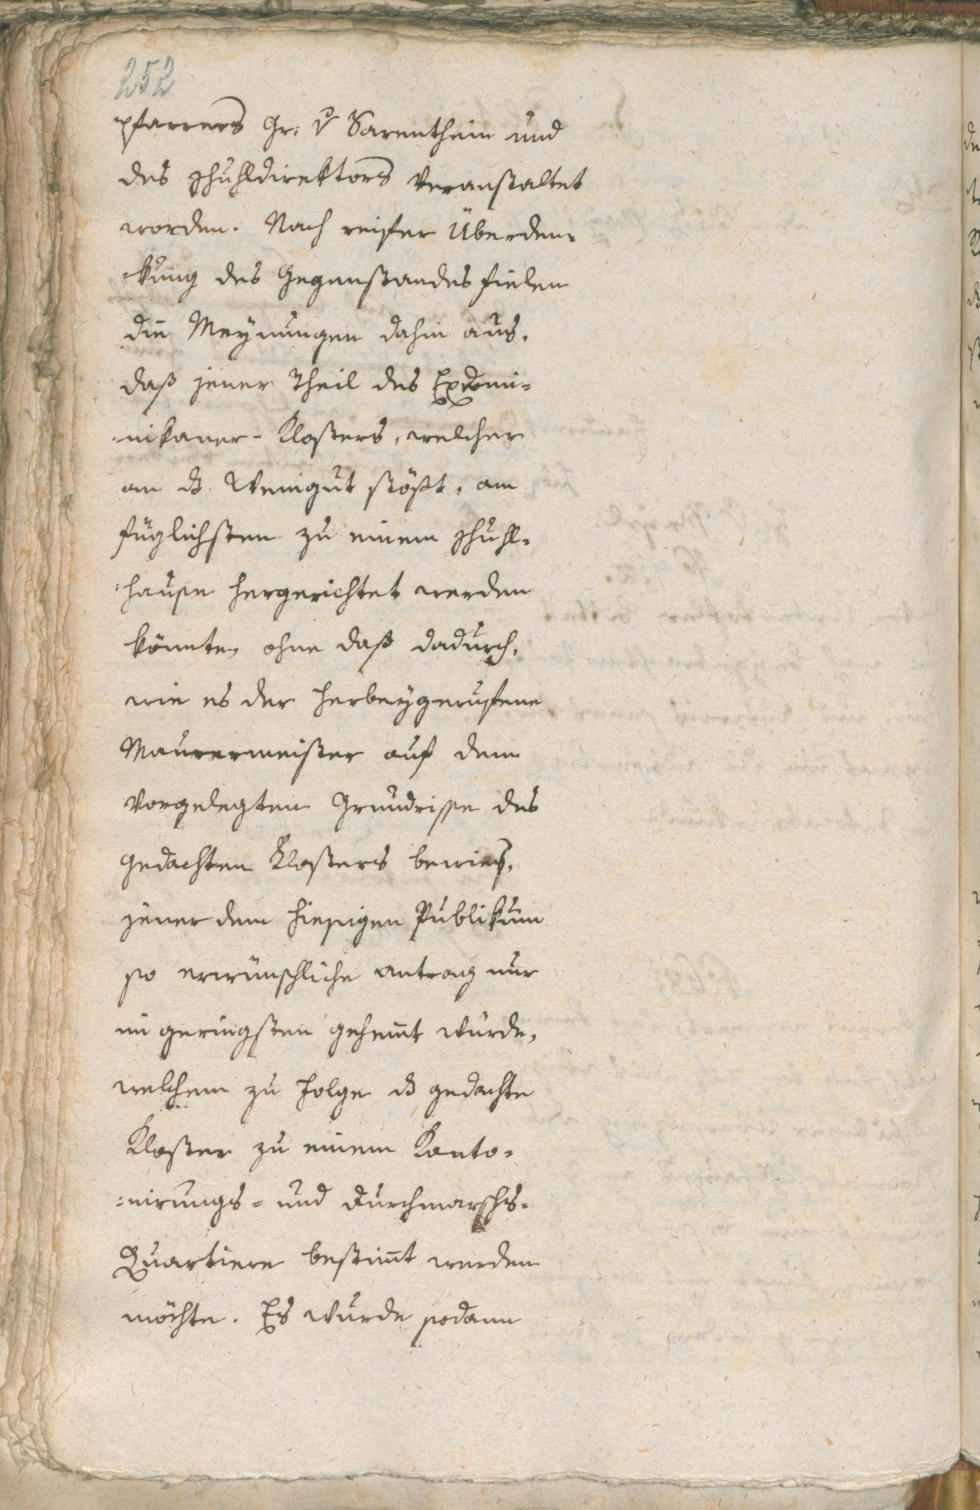 252
Pfarrers Gr: v Sarenthein und
des Schuhldirektors veranstaltet
worden. Nach reifer Überden-
kung des Gegenstandes fielen
die Meynungen dahin aus,
daß jener Theil des Exdomi-
nikaner-Klosters, welcher
an dß Weingut stößt, am
füglichsten zu einem Schuhl-
hause hergerichtet werden
könnte, ohne daß dadurch,
wie es der herbeygerufene
Maurermeister auf dem
vorgelegten Grundrisse des
gedachten Klosters bewies,
jener dem hiesigen Publikum
so erwünschliche antrag nur
im geringsten gehem̄t würde,
welchem zu Folge dß gedachte
Kloster zu einem Kanto-
nirungs- und Durchmarschs-
Quartiere bestim̄t werden
möchte. Es wurde sodann